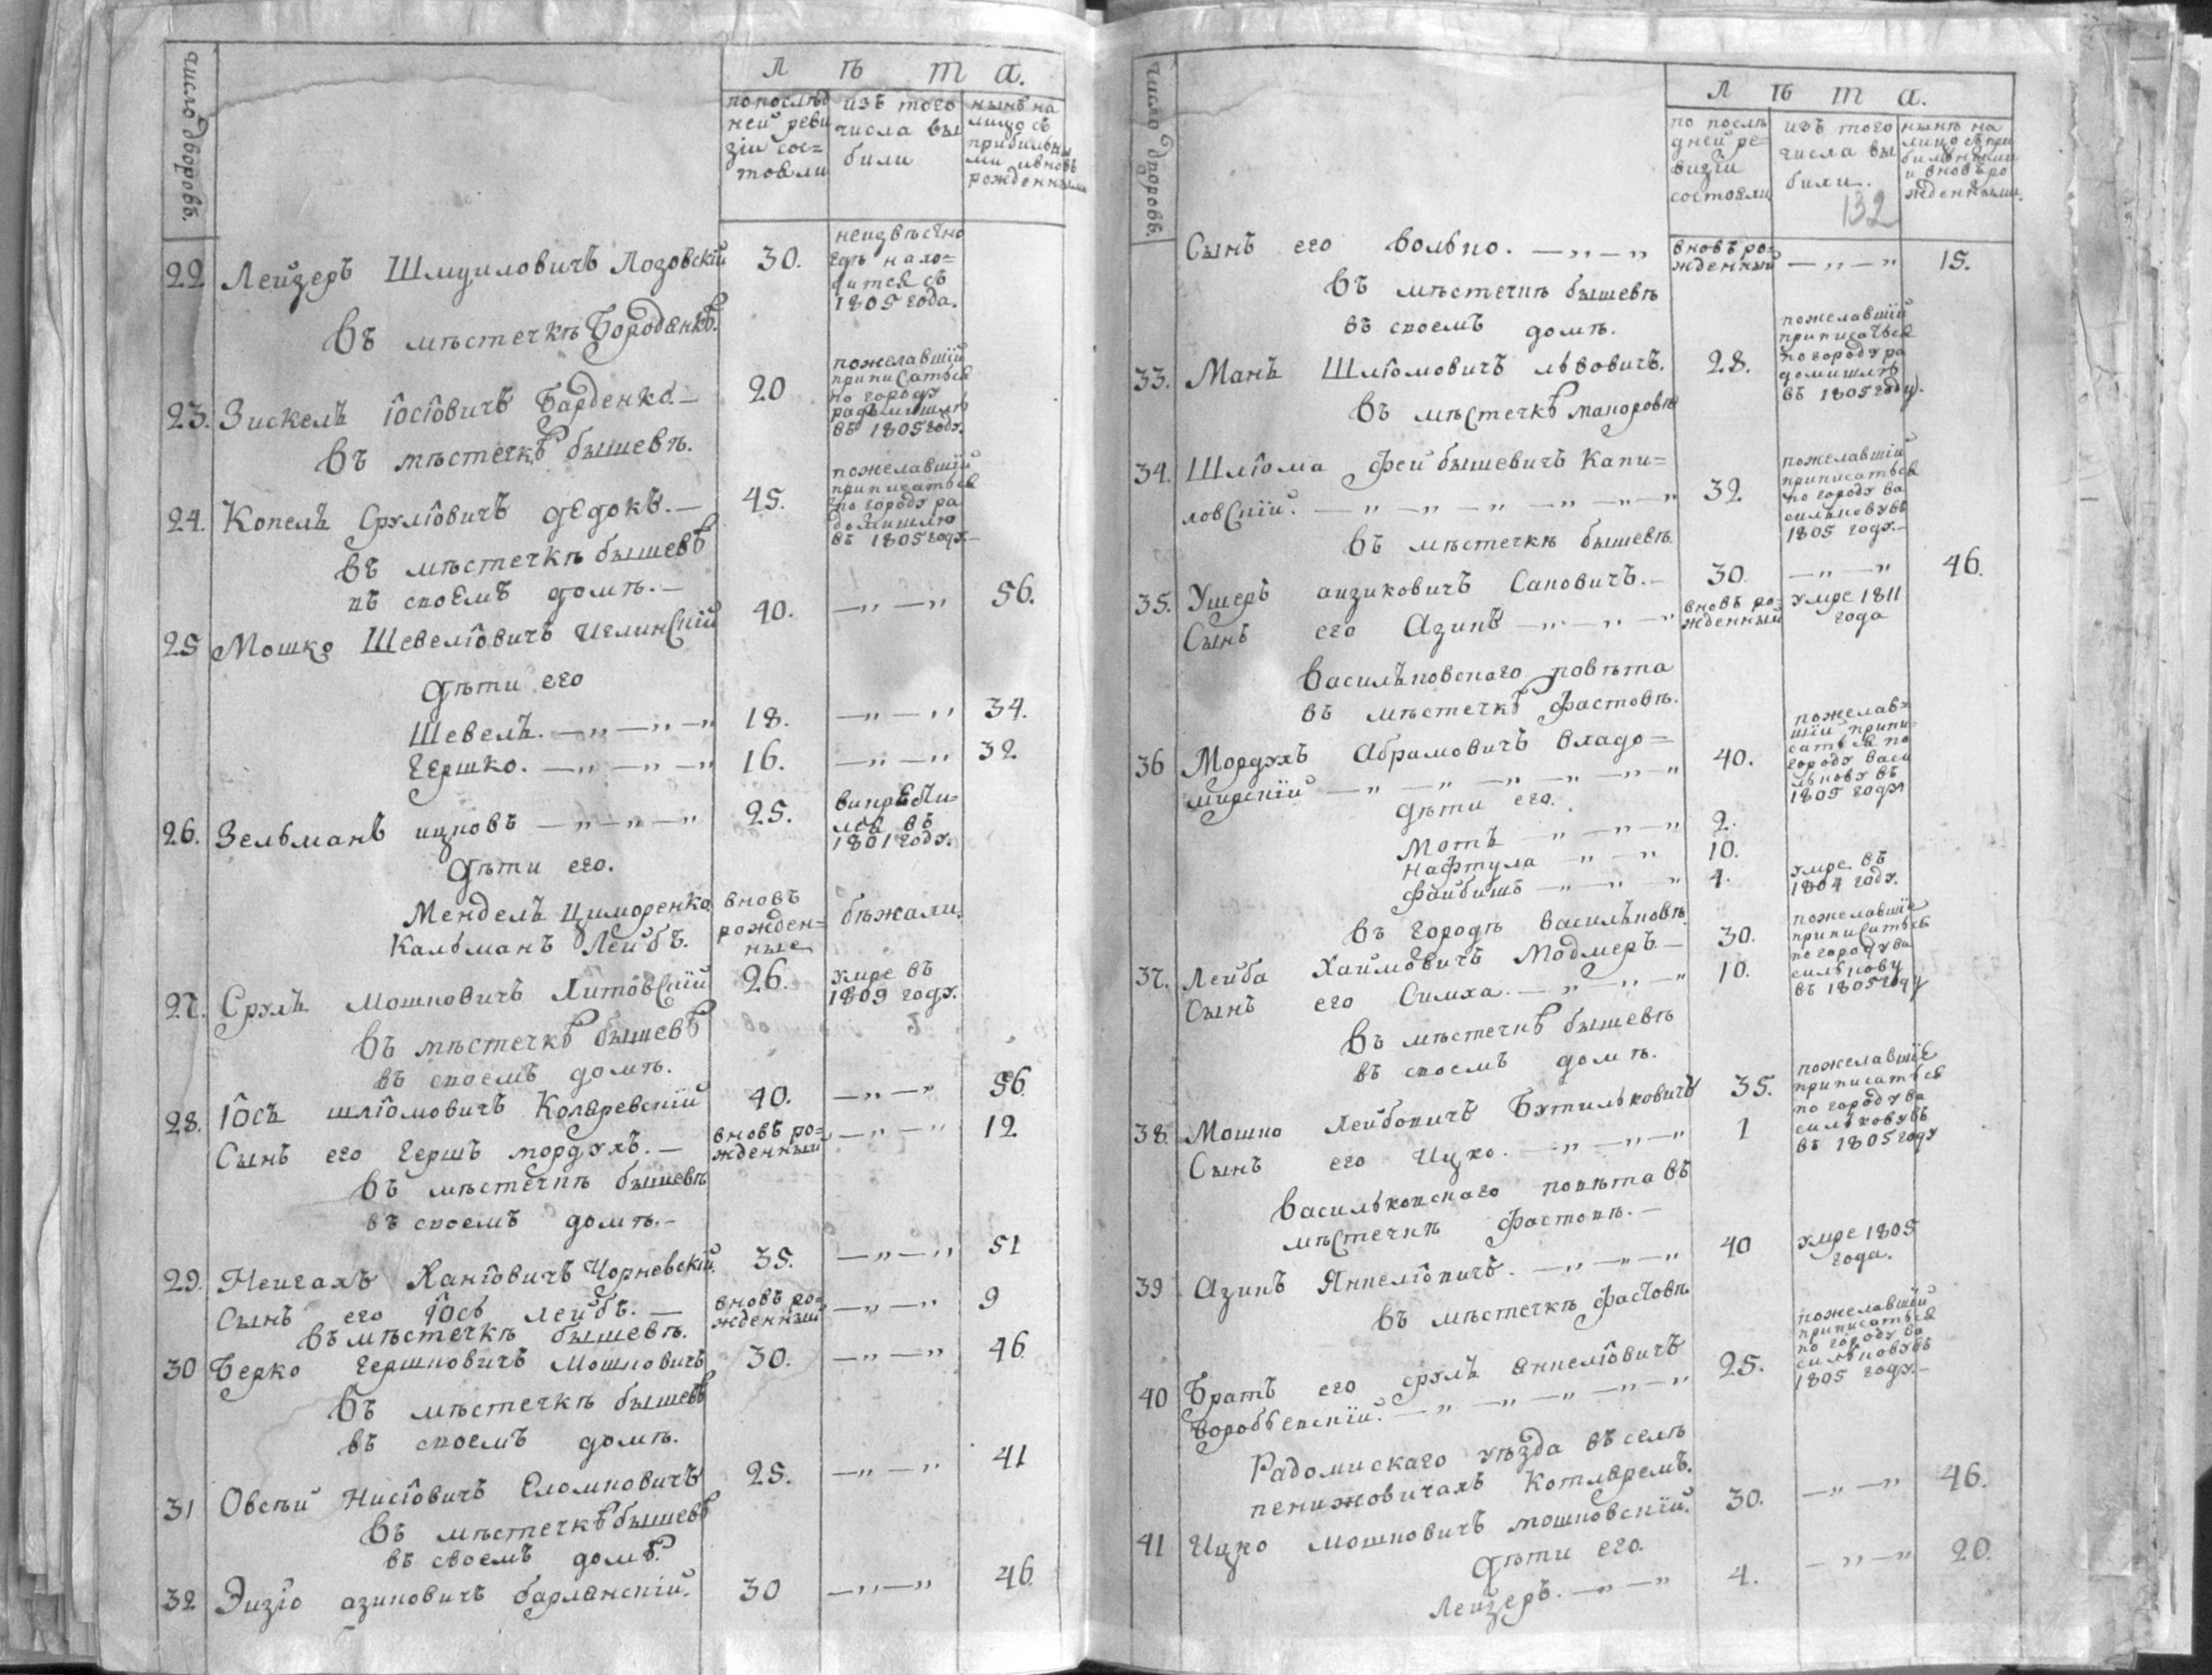 число дворовъ.
Л ѣ т а.
по послѣд
ней реви
зіи сос=
тояли
изъ того
числа вы
были
нынѣ на
лицо съ
прибылы
ми и вновь
рожденными
22 Лейзеръ Шмуиловичъ Лозовскій 30.
неизвѣсно
гдѣ нахо=
дится съ
1805 года.
Въ мѣстечкѣ Бородянкѣ.
23. Зискель Іосіовичъ Барденко. — 20
пожелавшій
приписаться
по городу
радомишлю
въ 1805 году.
Въ мѣстечкѣ бышевѣ.
24. Копель Срулiовичъ дѣдокъ. — 45.
пожелавшій
приписаться
по городу ра
домишлю
въ 1805 году. —
Въ мѣстечкѣ бышевѣ
въ своемъ домѣ. —
25 Мошко Шевеліовичъ Иглинскій 40. —„—„ 56.
Дѣти его
Шевель. —„—„—„ 18. —„—„ 34.
Гершко. —„—„—„ 16. —„—„ 32
26. Зельманъ ицковъ —„—„—„ 25.
въ
1801 году.
Дѣти его.
Мендель Циморенко
Кальманъ Лейбъ.
вновь
рожден=
ные
бѣжали.
27. Сруль мошковичъ Литовскій 26.
умре въ
1809 году.
Въ мѣстечкѣ бышевѣ
въ своемъ домѣ.
28. Іось шліомовичъ Коляревскій 40. —„—„ 56
Сынъ его Гершъ мордухъ. —
вновь ро=
жденный —„—„ 12
Въ мѣстечкѣ бышевѣ
въ своемъ домѣ. —
29. Неигахъ Ханіовичъ Чорневскій. 35. —„—„ 51
Сынъ его Іось лейбъ. —
вновь ро=
жденный —„—„ 9
Въ мѣстечкѣ бышевѣ.
30 Берко гершковичъ мошковичъ 30. —„—„ 46
Въ мѣстечкѣ бышевѣ
въ своемъ домѣ.
31 Овсѣй Нисіовичъ Сломковичъ 25. —„—„ 41
Въ мѣстечкѣ бышевѣ
въ своемъ домѣ.
32 Эизіо азиковичъ барланскій. 30 —„—„ 46.
число дворовъ.
Л ѣ т а.
по послѣ
дней ре=
визіи
состояли
изъ того
числа вы
были.
132
нынѣ на
лицо съ при
былыми
и вновь ро
жденными.
Сынъ его волько. —„—„
вновь ро=
жденный —„—„ 15.
Въ мѣстечкѣ бышевѣ
въ своемъ домѣ.
33. Манъ Шліомовичъ львовичъ. 28.
пожелавшій
приписаться
по городу ра
домишлю
въ 1805 году.
Въ мѣстечкѣ макоровѣ
34. Шліома фейбышевичъ Капи=
ловскій. —„—„—„—„—„—„ 32
пожелавшій
приписаться
по городу ва
силькову въ
1805 году. —
Въ мѣстечкѣ бышевѣ
35. Ушеръ аизиковичъ Саковичъ. — 30. —„—„ 46.
Сынъ его Азикъ —„—„—„
вновь ро=
жденный
умре 1811
года
Васильковскаго повѣта
въ мѣстечкѣ фастовѣ.
36 Мордухъ Абрамовичъ владо=
мирскій —„—„—„—„—„—„ 40.
пожелав=
шій припи=
саться по
городу васи
лькову въ
1805 году
Дѣти его.
Моть —„—„—„ 2.
Нафтула „—„ 10.
Файбишъ —„—„ „ 4.
умре въ
1804 году.
въ городѣ васильковѣ
37. Лейба Хаимовичъ Модмеръ. — 30.
Сынъ его Симха. —„—„—„ 10.
пожелавшіе
приписаться
по городу ва
силькову
въ 1805 году
Въ мѣстечкѣ бышевѣ
въ своемъ домѣ.
38. Мошко Лейбовичъ Бутильковичъ 35.
Сынъ его Ицко. —„—„—„ 1
пожелавшіе
приписаться
по городу ва
силькову въ
въ 1805 году
Васильковскаго повѣта въ
мѣстечкѣ фастовѣ. —
39 Азикъ Янкеліовичъ. —„—„—„ 40
умре 1805
года.
въ мѣстечкѣ фастовѣ
40 Братъ его сруль янкеліовичъ
воробьевскій. —„—„—„—„—„ 25.
пожелавшій
приписаться
по городу ва
силькову въ
1805 году. —
Радомискаго уѣзда въ селѣ
пенижовичахъ Котляремъ.
41 Ицко мошковичъ мошковскій. 30. —„—„ 46.
Дѣти его.
Лейзеръ. —„—„ 4. —„—„ 20.